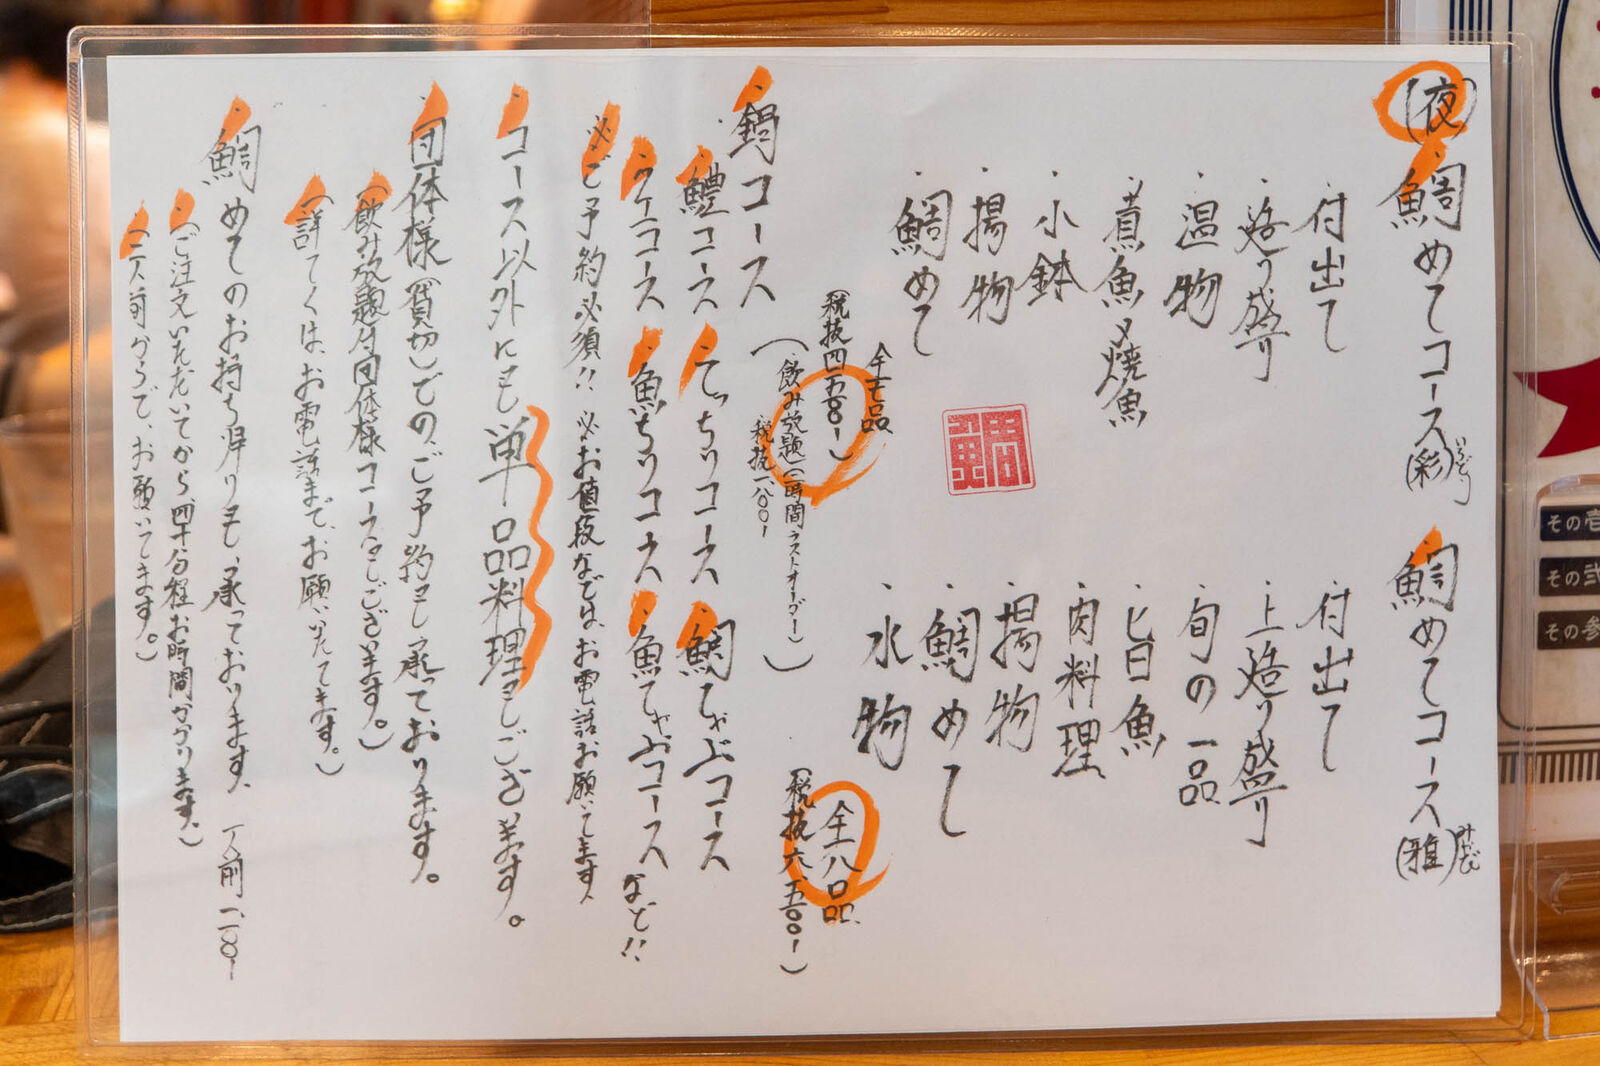 (夜)
鯛めしコース(彩)
いろどり
・付出し
・造り盛り
・温物
・煮魚又焼魚
・小鉢
・揚物
・鯛めし
全七品
(税抜四、五〇〇ー)
(飲み放題(二時間ラストオーダー)
税抜一、八〇〇ー)
鯛めしコース(雅)
みやび
・付出し
・上造り盛り
・旬の一品
・匕日魚
・肉料理
・揚物
・鯛めし
・水物
全八品
(税抜六、五〇〇ー)
・鍋コース
・鱧コース ・てっちりコース ・鯛しゃぶコース
・クエコース ・魚ちりコース ・魚しゃぶコースなど!!
必ご予約必須!! 必お値段などは、お電話お願いします、
・コース以外にも単品料理もございます。
・団体様(貸切)でのご予約も承っております。
(飲み放題付団体様コースもございます。)
(詳しくは、お電話まで、お願いいたします。)
・鯛めしのお持ち帰りも、承っております、 一人前一、二〇〇ー
(ご注文いただいてから、四十分程お時間かかります、)
(二人前からで、お願いします。)
鯛
その壱
その弐
その参